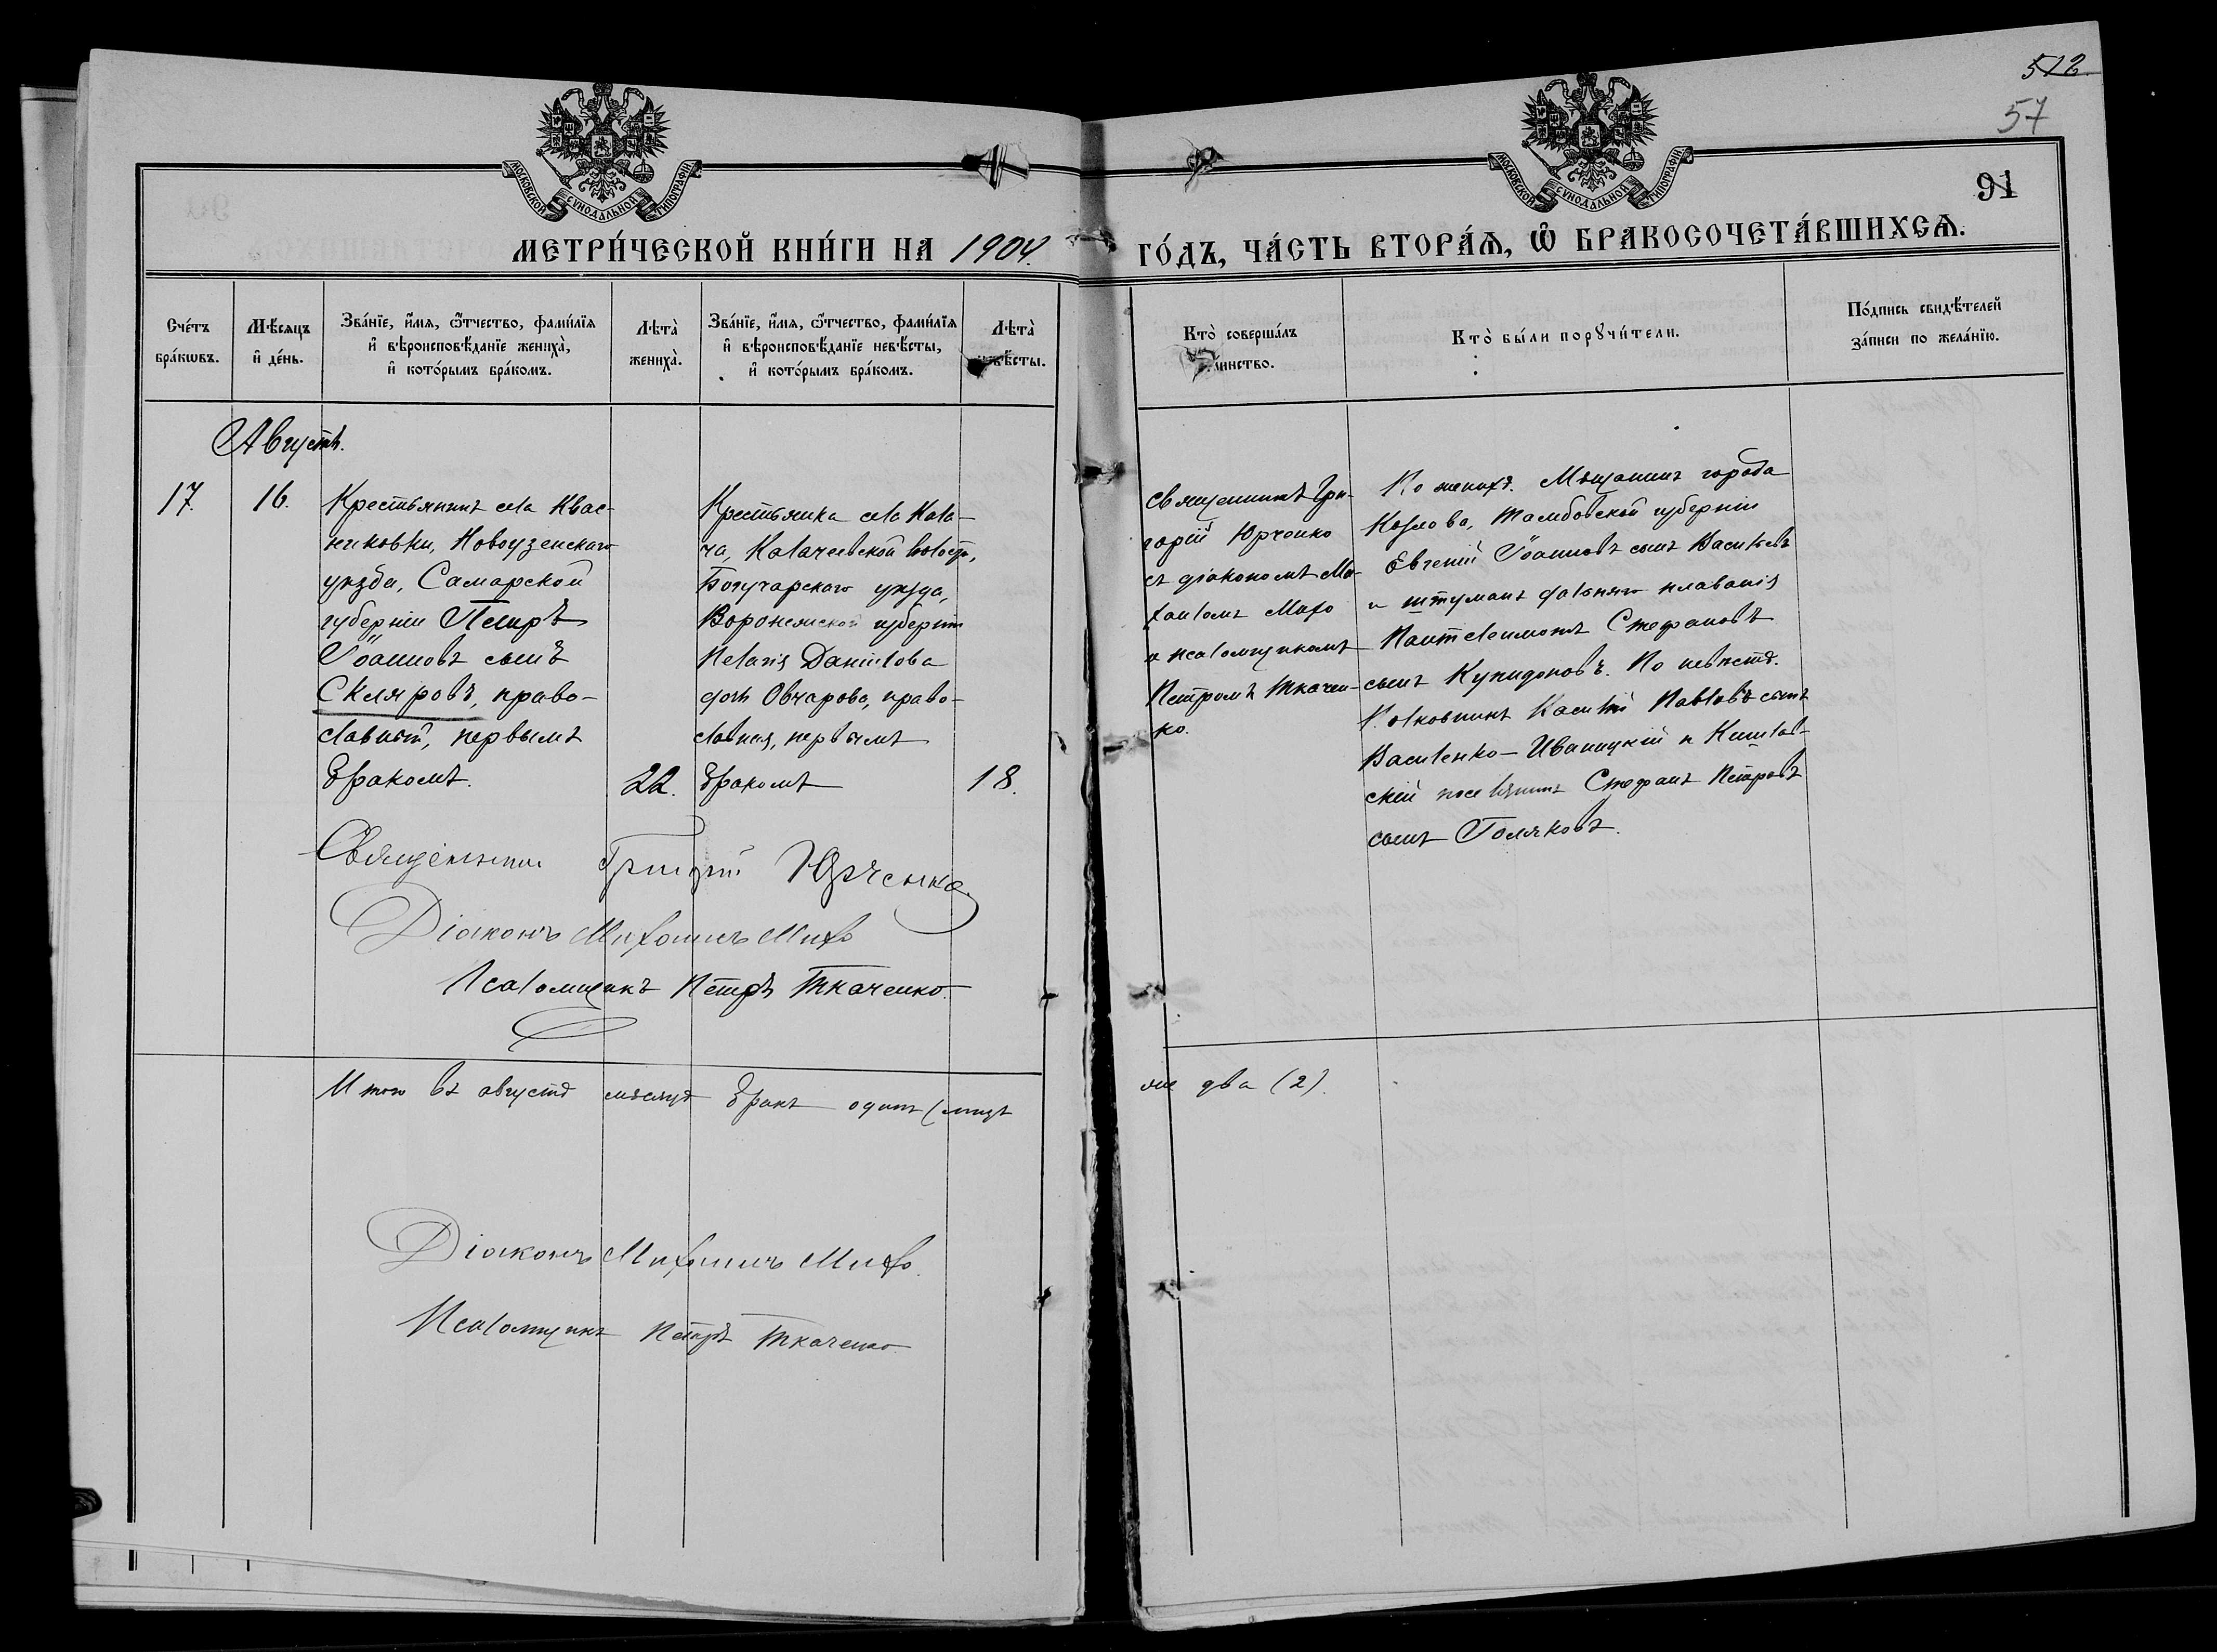 512
57
91
МОСКОВСКОЙ СѴНОДАЛЬНОЙ ТИПОГРАФІИ
МОСКОВСКОЙ СѴНОДАЛЬНОЙ ТИПОГРАФІИ
МЕТРИ́ЧЕСКОЙ КНИ́ГИ НА 1904. ГО́ДЪ, ЧА́СТЬ ВТОРА́Ѧ, Ѡ҆ БРАКОСОЧЕТА́ВШИХСѦ.
Сче́тъ
бра́кѡвъ.
Мѣ́сяцъ
и҆ де́нь.
Зва́нїе, и҆́мѧ, ѻ҆́тчество, фамилїѧ
и҆ вѣроисповѣ́данїе жениха̀,
и҆ кото́рымъ бра́комъ.
Лѣта̀
жениха̀.
Зва́нїе, и҆́мѧ, ѻ҆́тчество, фамилїѧ
и҆ вѣроисповѣ́данїе невѣ́сты,
и҆ кото́рымъ бра́комъ.
Лѣта̀
невѣ́сты.
Кто̀ соверша́лъ
таинство.
Кто̀ бы́ли порꙋчи́тели.
По́дпись свидѣ́телей
за́писи по жела́нїю.
Августъ.
17.
16.
Крестьянинъ села Квас-
никовки, Новоузенскаго
уѣзда, Самарской
губерніи Петръ
Іоанновъ сынъ
Скляровъ, право-
славный, первымъ
бракомъ.
22.
Крестьянка села Кала-
ча, Калачевской волости,
Богучарскаго уѣзда,
Воронежской губерніи
Пелагія Даніилова
дочь Овчарова, право-
славная, первымъ
бракомъ
18.
Священникъ Гри-
горій Юрченко
съ діакономъ Ми-
хаиломъ Михо
и псаломщикомъ
Петромъ Ткачен-
ко.
По женихѣ. Мѣщанинъ города
Козлова, Тамбовской губерніи
Евгеній Іоанновъ сынъ Васильевъ
и штурманъ дальняго плаванія
Пантелеимонъ Стефановъ
сынъ Купидоновъ. По невѣстѣ.
Полковникъ Василій Павловъ сынъ
Василенко-Иваницкій и
поселянинъ Стефанъ Петровъ
сынъ Голяковъ.
Священникъ Григорій Юрченко
Діаконъ Михаилъ Михо
Псаломщикъ Петръ Ткаченко.
Итого въ августѣ мѣсяцѣ бракъ одинъ, лицъ
же два (2).
Діаконъ Михаилъ Михо.
Псаломщикъ Петръ Ткаченко